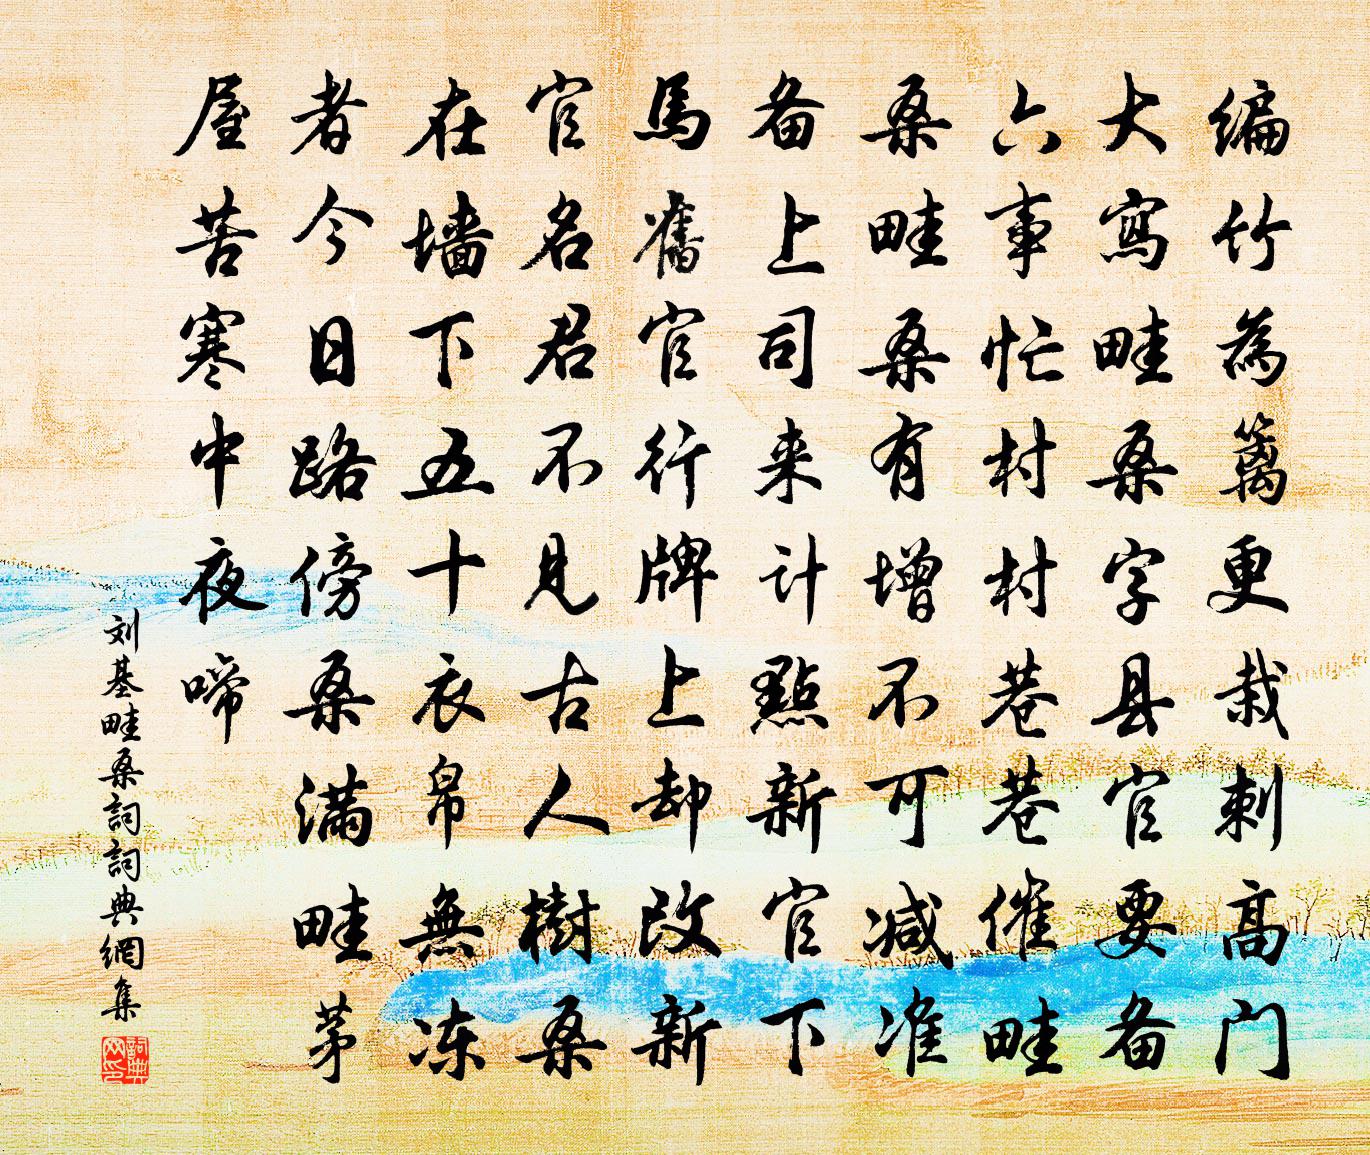 编竹為篱更栽刺高门
大寫畦桑字县官要备
六事忙村村巷巷催畦
桑畦桑有增不可减准
备上司来计點新官下
馬舊官行牌上却改新
官名君不見古人樹桑
在墙下五十衣帛無冻
者今日路傍桑满畦茅
屋苦寒中夜啼
刘基畦桑詞詞典網集
詞典网印